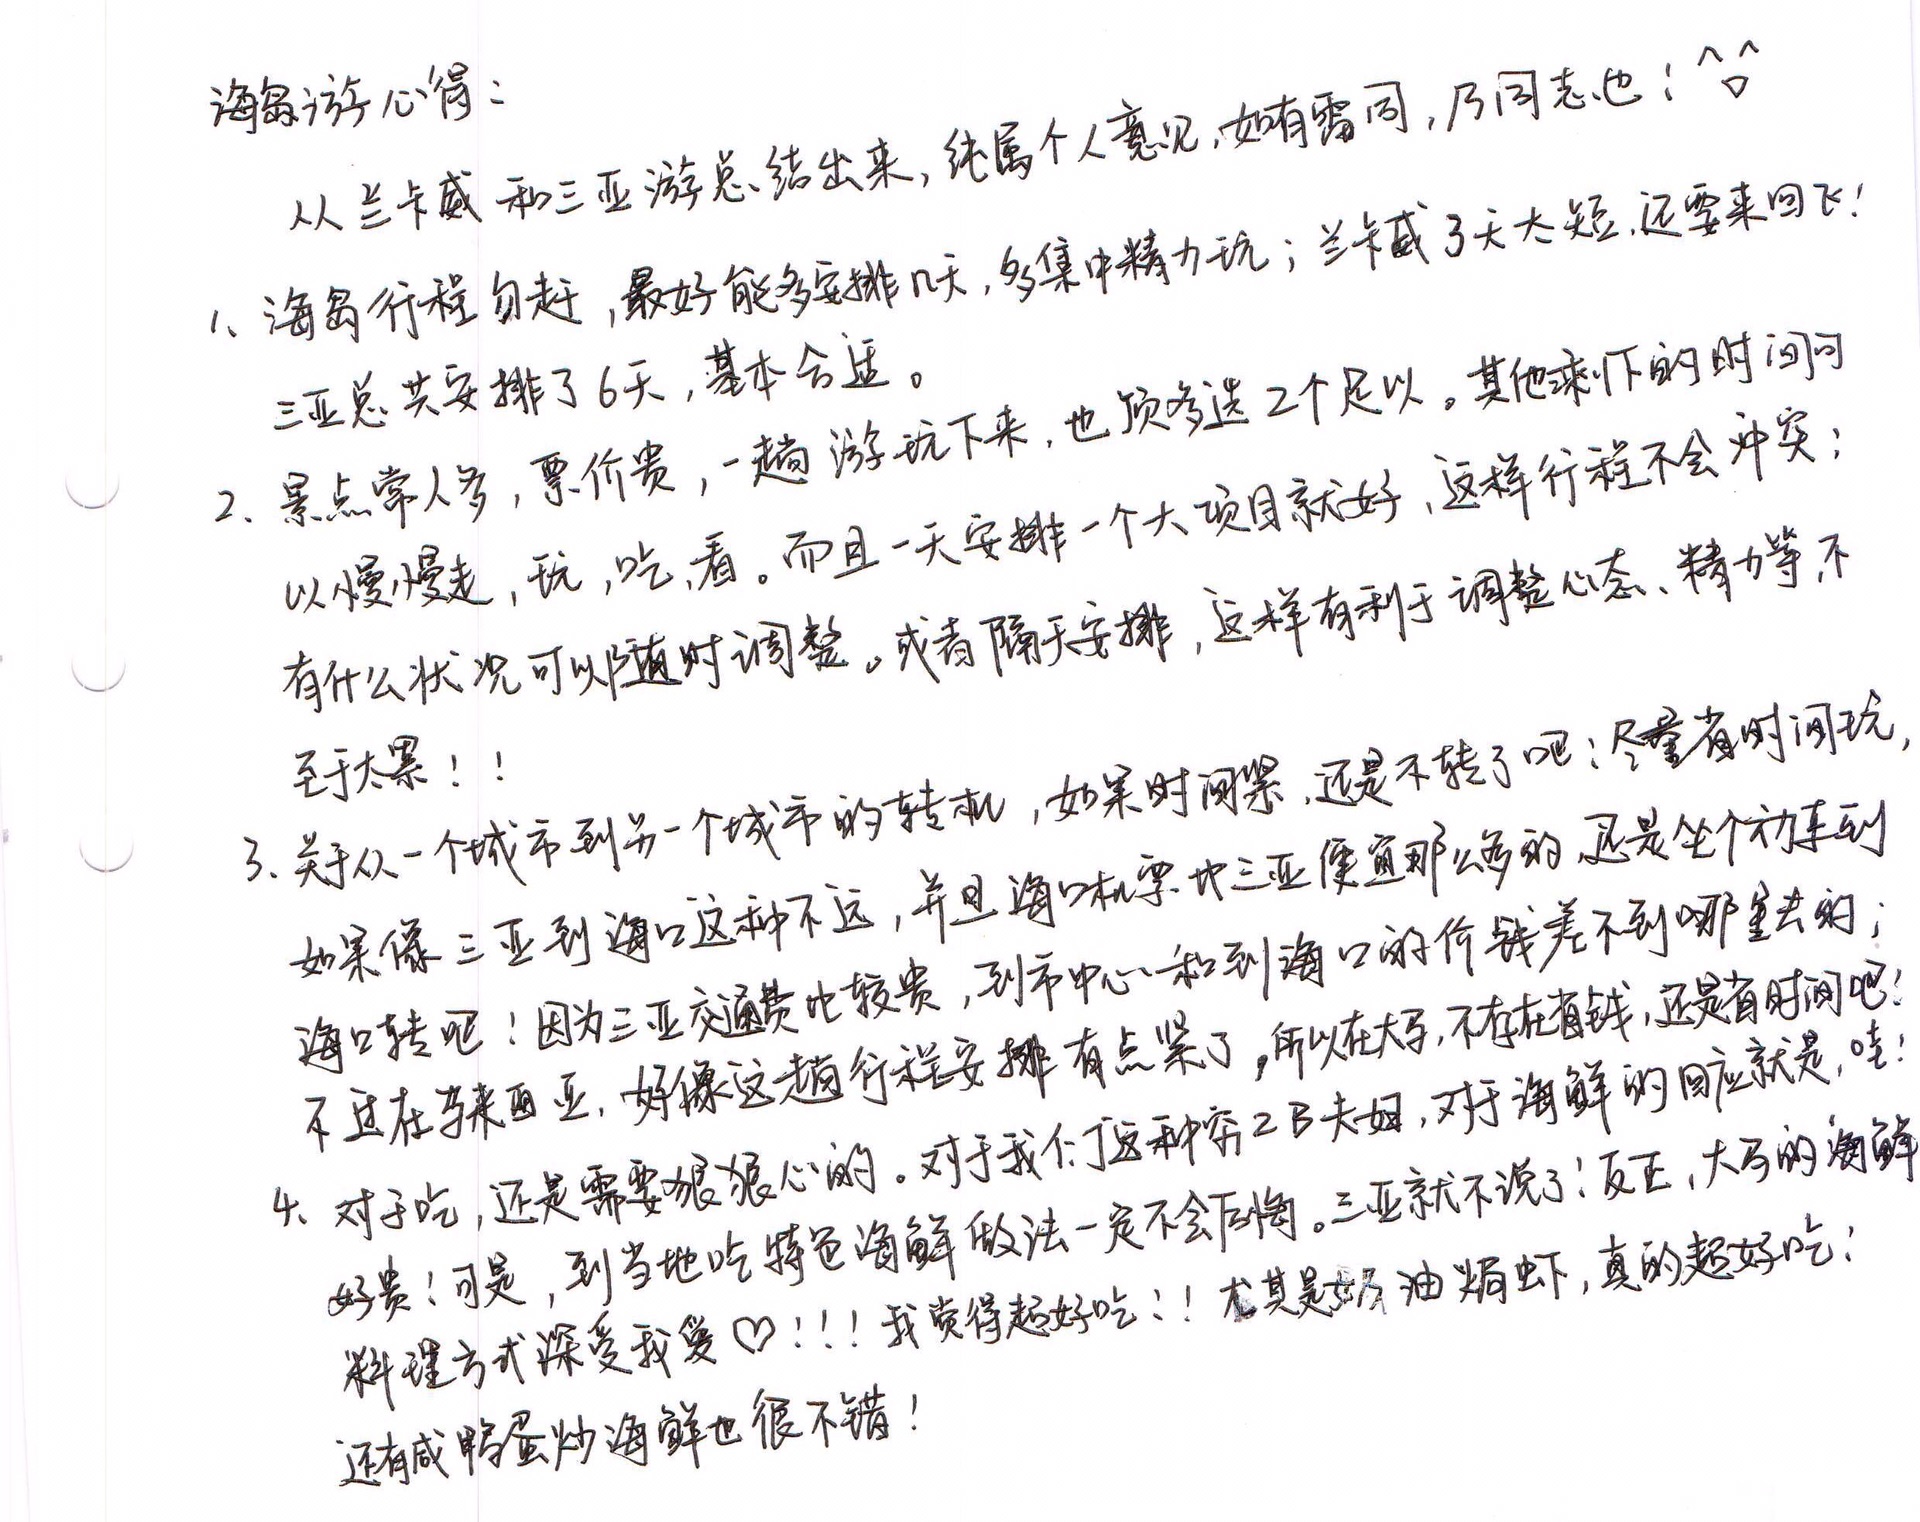 海岛游心得：
从兰卡威和三亚游总结出来，纯属个人意见，如有雷同，乃同志也！^o^
1、海岛行程勿赶，最好能多安排几天，多集中精力玩；兰卡威3天太短，还要来回飞！
三亚总共安排了6天，基本合适。
2、景点常人多，票价贵，一趟游玩下来，也顶多选2个足以。其他剩下的时间可
以慢慢走，玩，吃，看。而且一天安排一个大项目就好，这样行程不会冲突；
有什么状况可以随时调整。或者隔天安排，这样有利于调整心态、精力等，不
至于太累！！
3、关于从一个城市到另一个城市的转机，如果时间紧，还是不转了吧；尽量省时间玩，
如果像三亚到海口这种不远，并且海口机票比三亚便宜那么多的，还是坐个动车到
海口转吧！因为三亚交通费比较贵，到市中心和到海口的价钱差不到哪里去的；
不过在马来西亚，好像这趟行程安排有点紧了，所以在大马，不存在省钱，还是省时间吧！
4、对于吃，还是需要狠狠心的。对于我们这种穷2B夫妇，对于海鲜的回应就是，哇！
好贵！可是，到当地吃特色海鲜做法一定不会后悔。三亚就不说了！反正，大马的海鲜
料理方式深受我爱♡！！！我觉得超好吃！！尤其是奶油焗虾，真的超好吃！
还有咸鸭蛋炒海鲜也很不错！